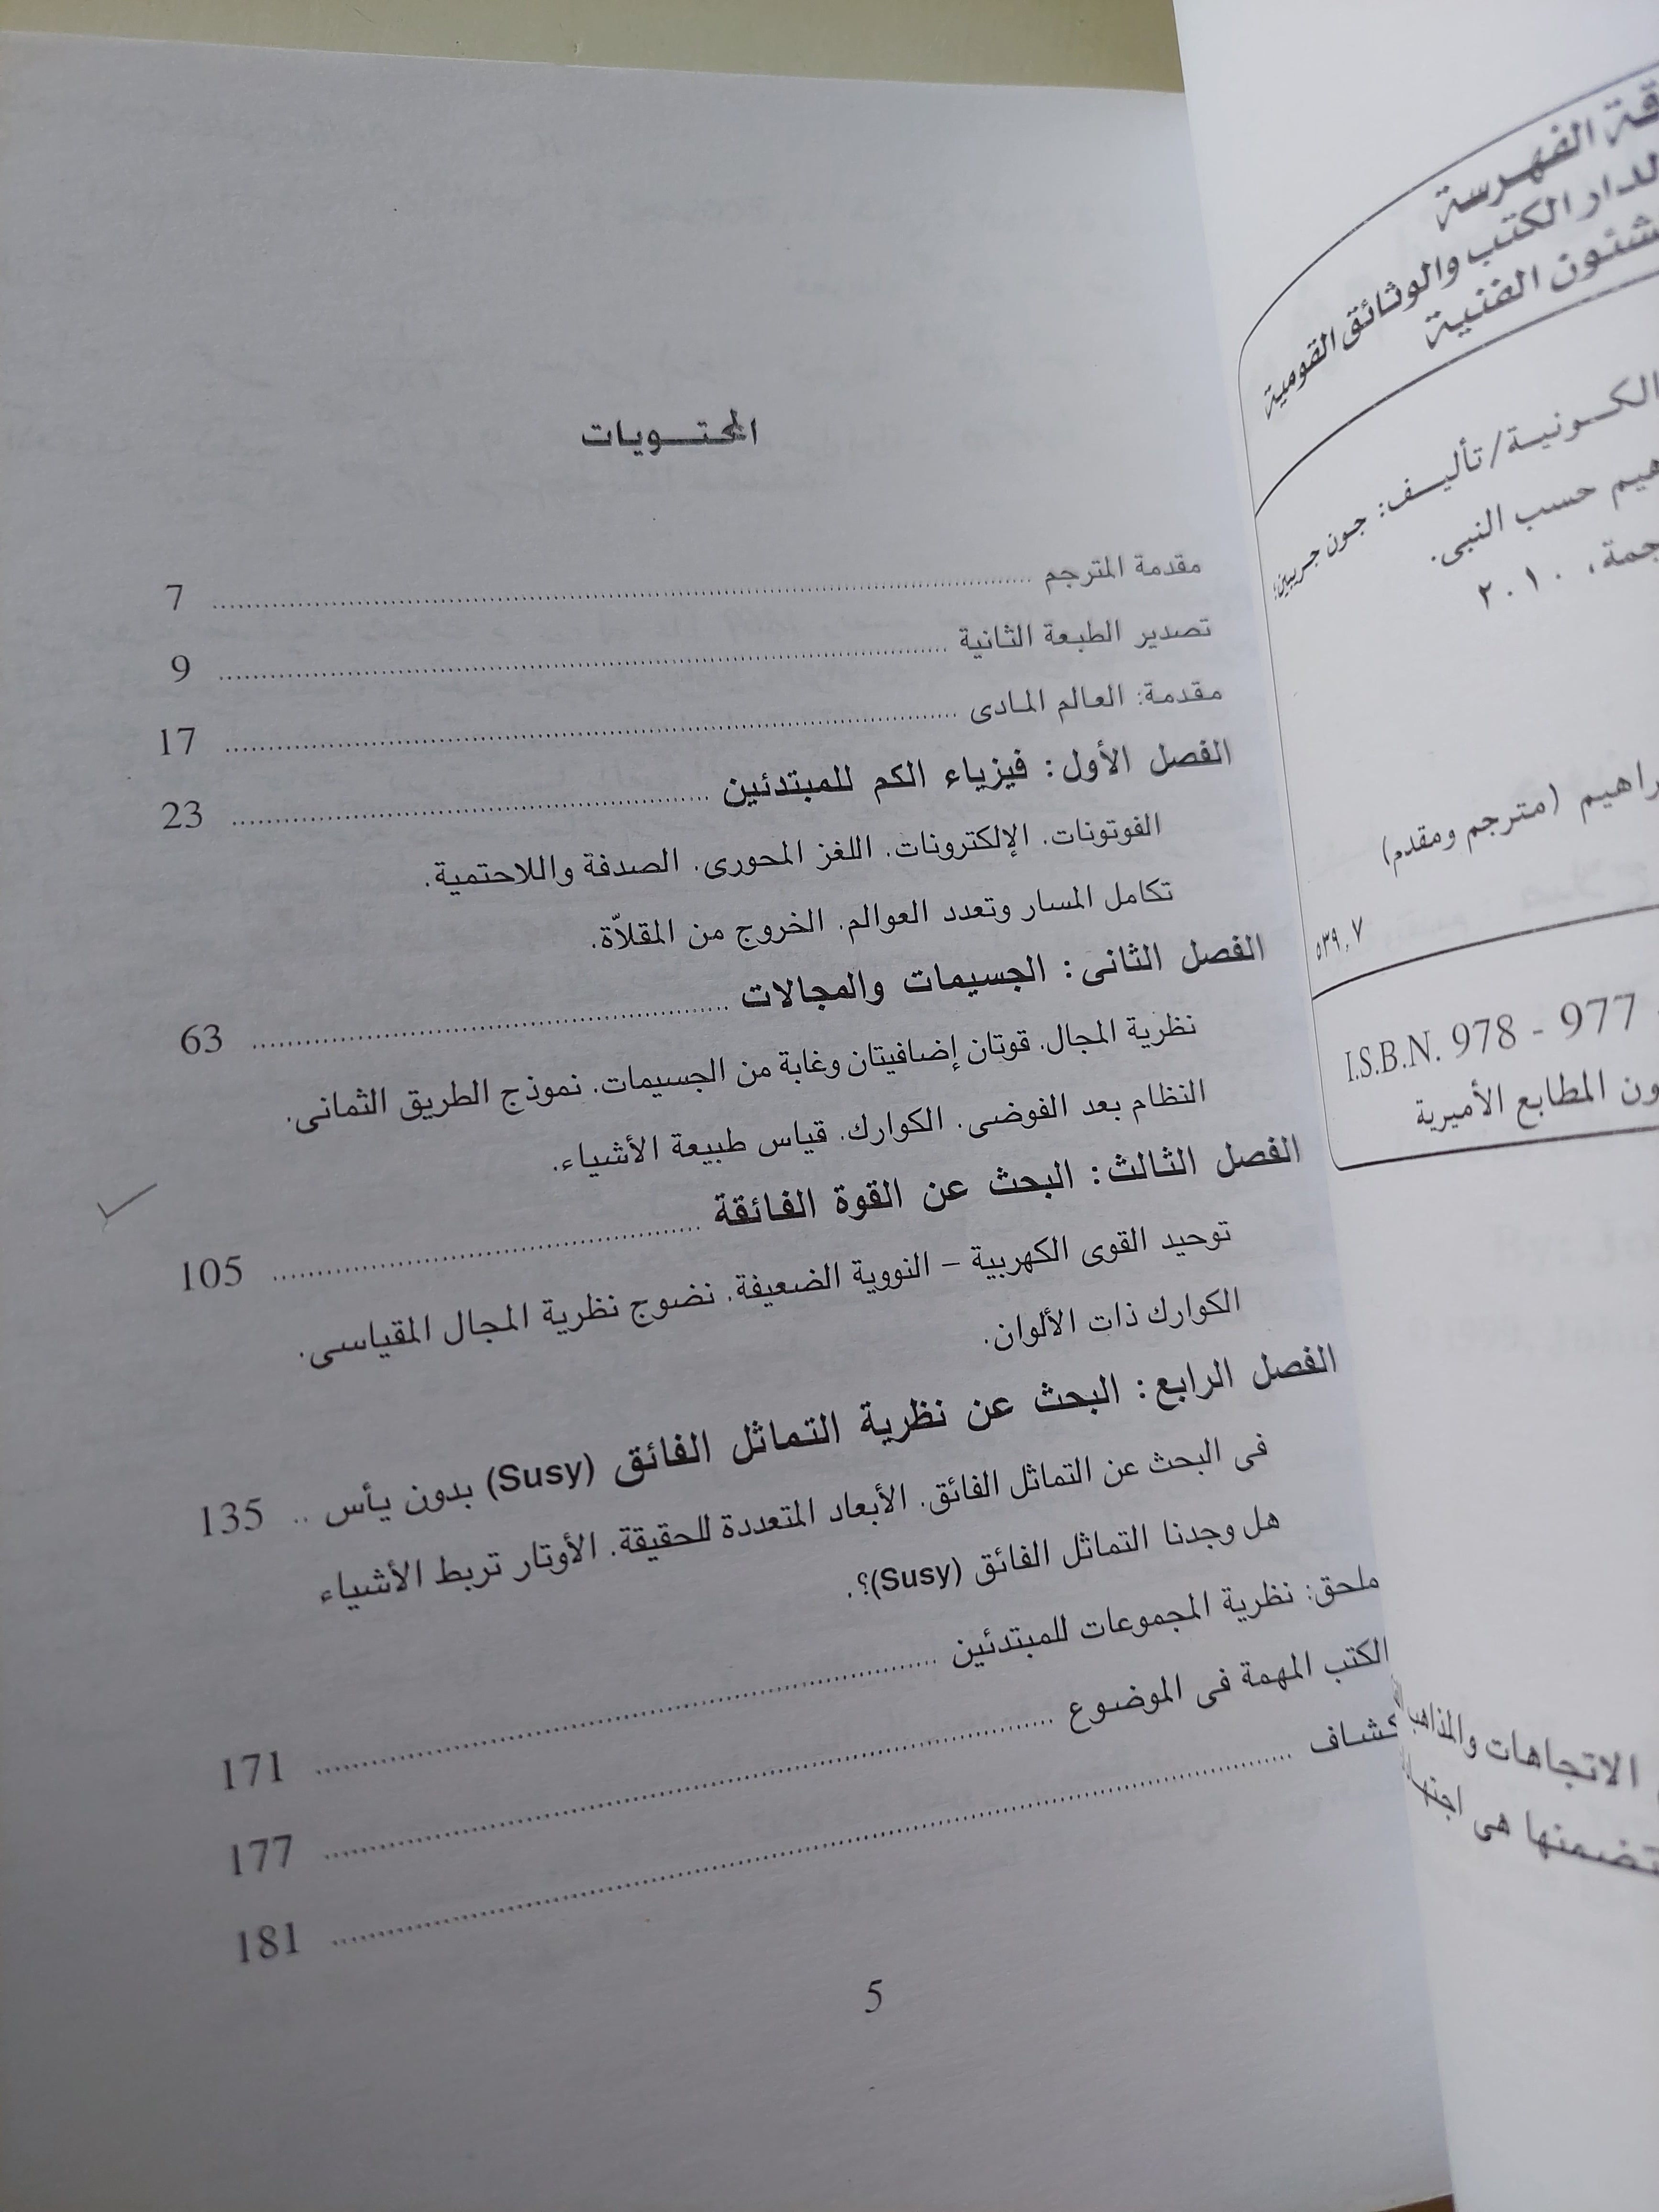 قة الفهرسة
لدار الكتب والوثائق القومية
شئون الفنية
الكونية/تأليف: جون جريبين؛
هيم حسب النبى.
جمة، ٢٠١٠
راهيم (مترجم ومقدم)
٥٣٩,٧
I.S.B.N. 978 - 977
ون المطابع الأميرية
الاتجاهات والمذاهب
تضمنها هى
المحتويات
مقدمة المترجم ........ 7
تصدير الطبعة الثانية ........ 9
مقدمة: العالم المادى ........ 17
الفصل الأول: فيزياء الكم للمبتدئين ........ 23
الفوتونات. الإلكترونات. اللغز المحورى. الصدفة واللاحتمية.
تكامل المسار وتعدد العوالم. الخروج من المقلاّة.
الفصل الثانى: الجسيمات والمجالات ........ 63
نظرية المجال. قوتان إضافيتان وغابة من الجسيمات. نموذج الطريق الثمانى.
النظام بعد الفوضى. الكوارك. قياس طبيعة الأشياء.
الفصل الثالث: البحث عن القوة الفائقة ........ 105
توحيد القوى الكهربية – النووية الضعيفة. نضوج نظرية المجال المقياسى.
الكوارك ذات الألوان.
الفصل الرابع: البحث عن نظرية التماثل الفائق (Susy) بدون يأس .. 135
فى البحث عن التماثل الفائق. الأبعاد المتعددة للحقيقة. الأوتار تربط الأشياء
هل وجدنا التماثل الفائق (Susy)؟.
ملحق: نظرية المجموعات للمبتدئين ........ 171
الكتب المهمة فى الموضوع ........ 177
كشاف ........ 181
5